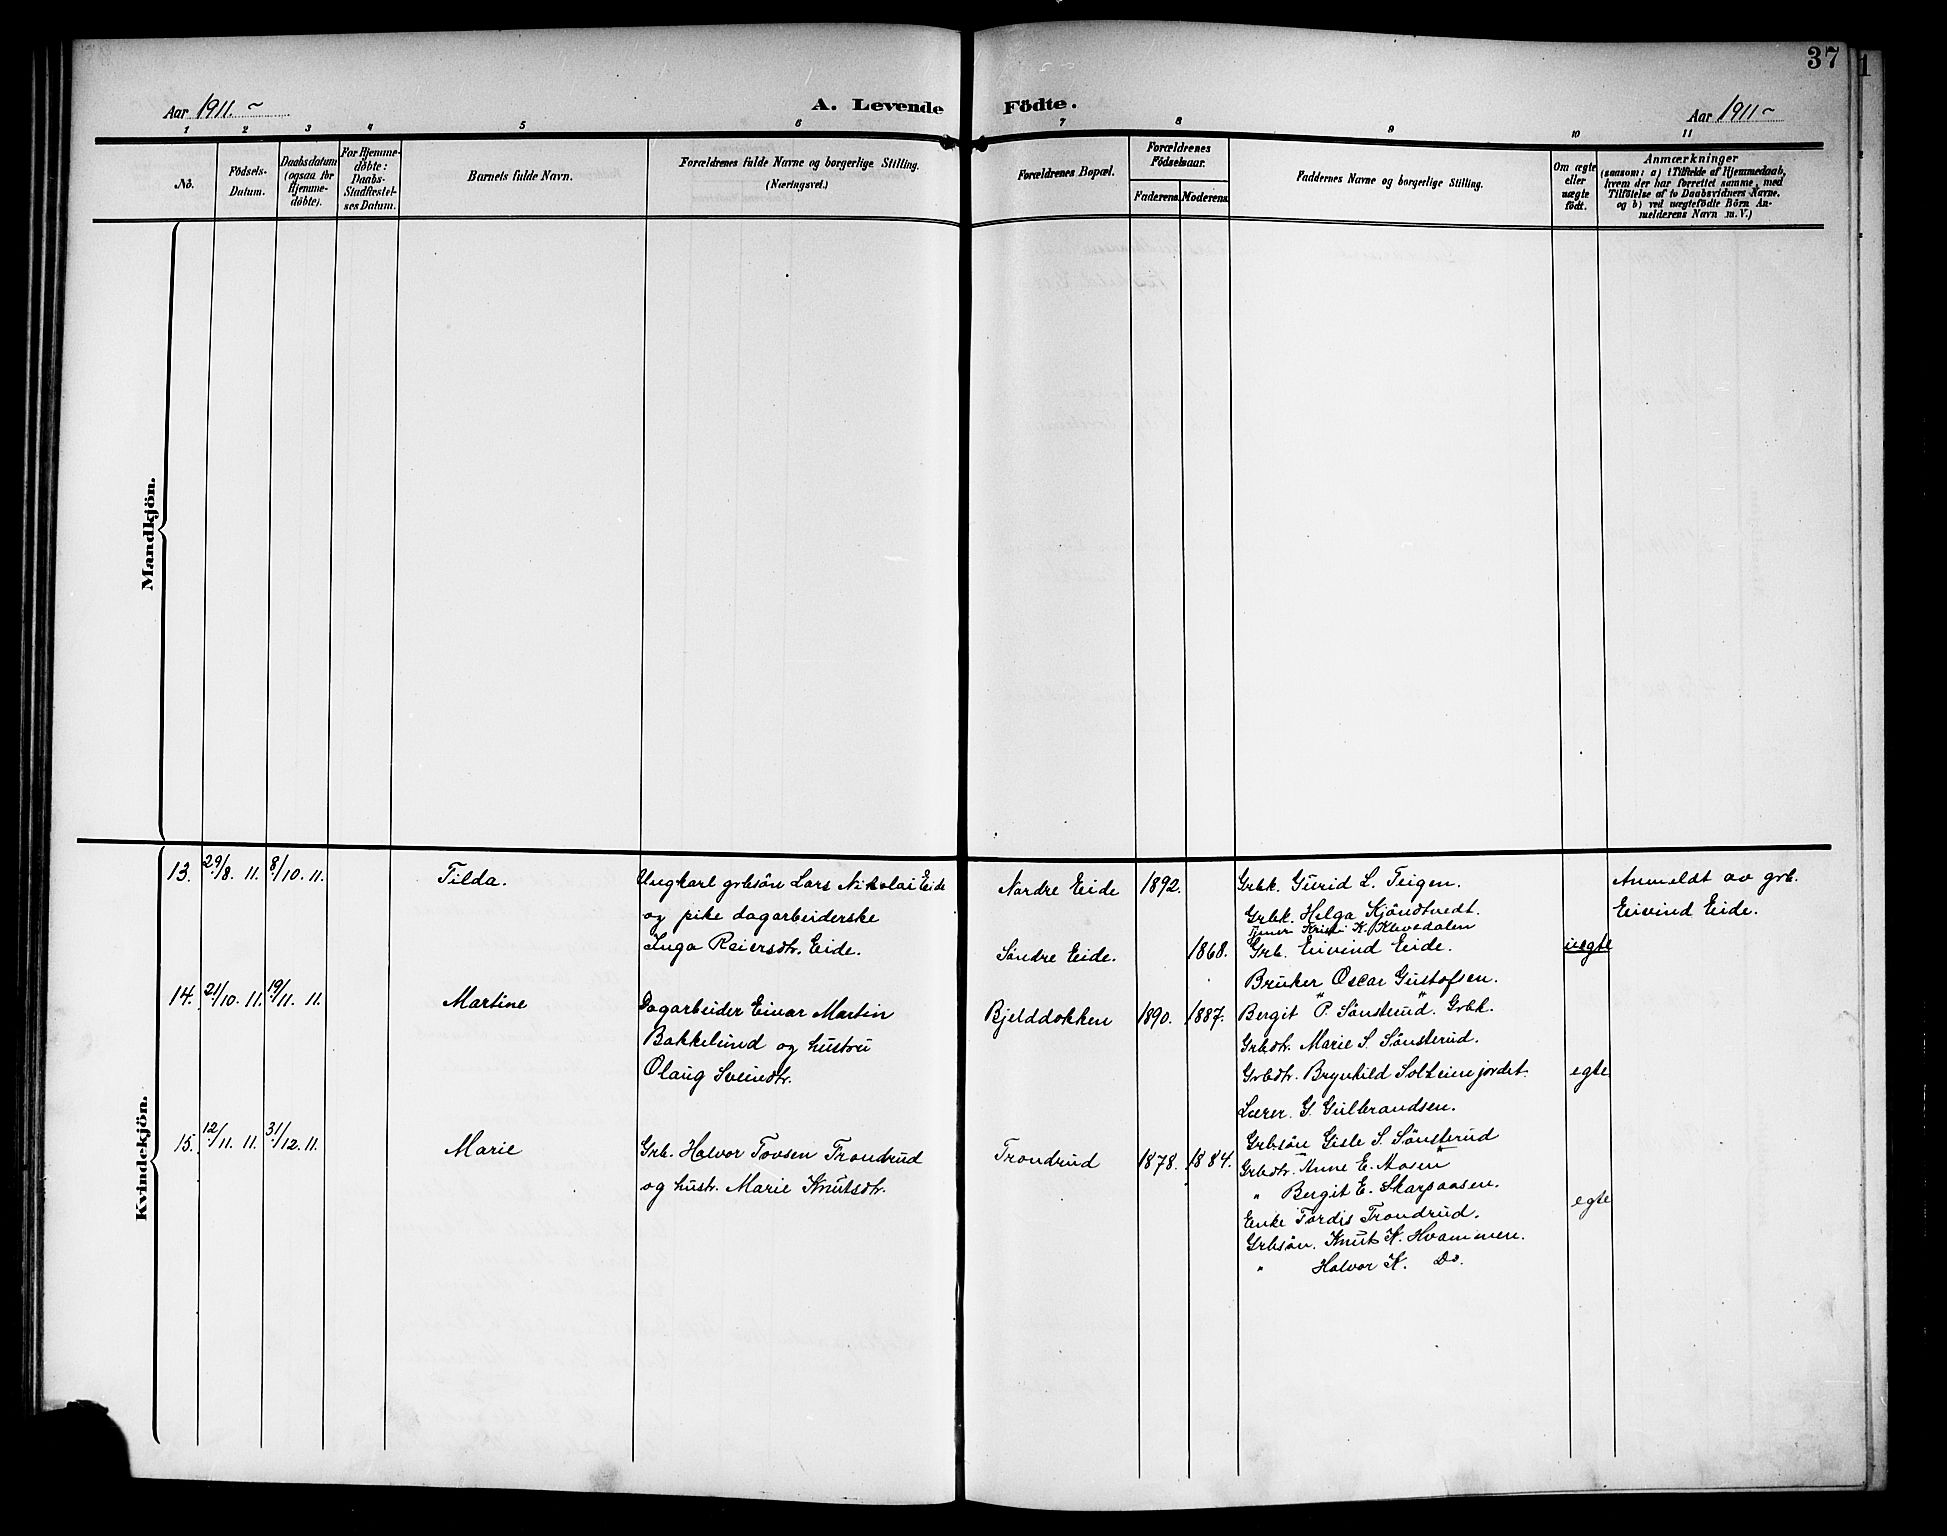 37
Aar 1911.
A. Levende Födte.
Aar 1911
1 2 3 4 5 6 7 8 9 10 11
No.
Födsels-Datum.
Daabsdatum (ogsaa for Hjemme-döbte).
For Hjemme-döbte: Daabs-Stadfæstel-ses Datum.
Barnets fulde Navn.
Forældrenes fulde Navne og borgerlige Stilling.
(Næringsvei.)
Forældrenes Bopæl.
Forældrenes Födselsaar.
Faderens. Moderens.
Faddernes Navne og borgerlige Stilling.
Om ægte eller uægte födt.
Anmærkninger
(saasom: a) i Tilfælde af Hjemmedaab,
hvem der har forrettet samme, med
Tilföielse af to Daabsvidners Navne.
og b) ved uægtefödte Börn An-
melderens Navn m. V.)
Mandkjön.
Kvindekjön.
13. 29/8. 11. 8/10. 11.
Tilda.
Ungkarl grbsön Lars Nikolai Eide
og pike dagarbeiderske
Inga Reiersdtr. Eide.
Nordre Eide 1892.
Söndre Eide. 1868.
Grbk. Gurid L. Teigen.
Grbk. Helga Kjöndtvedt.
Tjener Kristi K. Klevedalen
Grb. Eivind Eide.
Bruker Oscar Gustafsen.
uegte
Anmeldt av grb.
Eivind Eide.
14. 21/10. 11. 19/11. 11
Martine
Dagarbeider Einar Martin
Bakkelund og hustru
Olaug Sveindtr.
Bjelddokken 1890. 1887.
" "
Bergit P. Sönsterud. Grbk.
Grbdtr. Marie S. Sönsterud.
Grbdtr. Brynhild Solheimjordet.
Lærer. G. Gulbrandsen.
Grbsön Gisle S. Sönsterud
egte
15. 12/11. 11. 31/12. 11.
Marie
Grb. Halvor Tovsen Trondrud
og hustr. Marie Knutsdtr.
Trondrud 1878. 1884.
Grbdtr. Anne E. Aasen
" Bergit E. Skarpaasen.
Enke Tordis Trondrud.
Grbsön. Knut K. Hvammen.
" Halvor K. Do.
egte